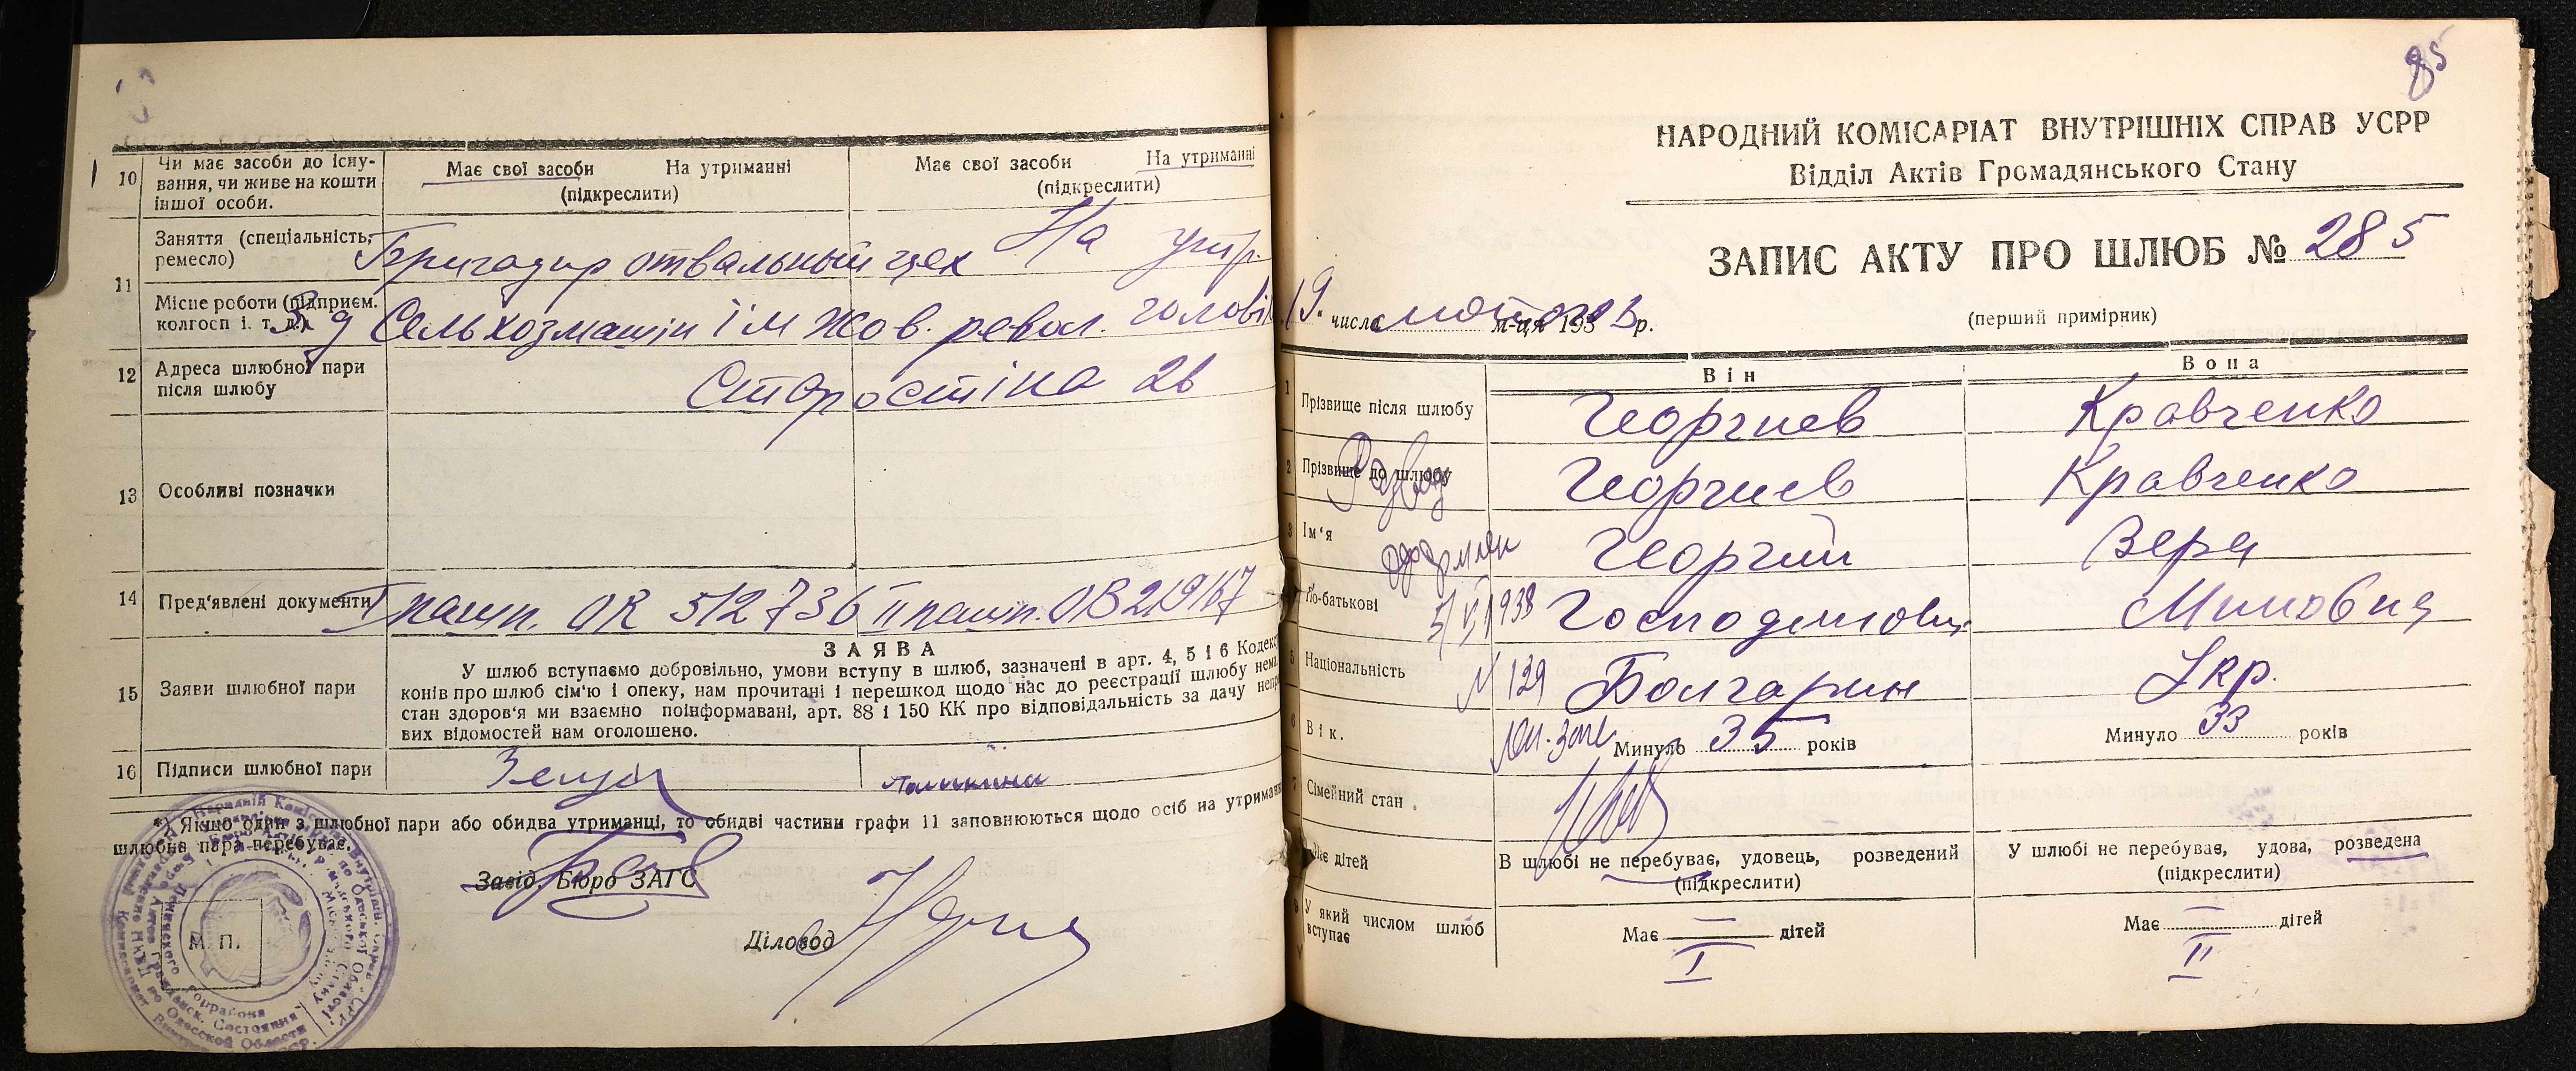 10
Чи має засоби до існу-
вання, чи живе на кошти
іншої особи.
Має свої засоби На утриманні
(підкреслити)
Має свої засоби На утриманні
(підкреслити)
11
Заняття (спеціальність,
ремесло)
Бригадир отвальный цех
На утр.
Місце роботи (підприєм.
колгосп і. т. д.)
Сельхозмашін ім Жов. револ.
12
Адреса шлюбної пари
після шлюбу
Старостіна 26
13
Особливі позначки
14
Пред'явлені документи
I пашп. ОК 512736 II пашп. ОВ 219167
15
Заяви шлюбної пари
ЗАЯВА
У шлюб вступаємо добровільно, умови вступу в шлюб, зазначені в арт. 4, 5 і 6 Кодекс
конів про шлюб сім'ю і опеку, нам прочитані і перешкод щодо нас до реєстрації шлюбу нема
стан здоров'я ми взаємно поінформавані, арт. 88 і 150 КК про відповідальність за дачу непр
вих відомостей нам оголошено.
16
Підписи шлюбної пари
*) Якщо один з шлюбної пари або обидва утриманці, то обидві частини графи 11 заповнюються щодо осіб на утриман
шлюбна пара перебуває.
Завід. Бюро ЗАГС
Діловод
М. П.
85
НАРОДНИЙ КОМІСАРІАТ ВНУТРІШНІХ СПРАВ УСРР
Відділ Актів Громадянського Стану
ЗАПИС АКТУ ПРО ШЛЮБ № 285
19" число лютого м-ця 193 р.
(перший примірник)
Він
Вона
1
Прізвище після шлюбу
Георгиев
Кравченко
2
Прізвище до шлюбу
Георгиев
Кравченко
Развод
3
Ім'я
Георгий
Вера
оформлен
По-батькові
5/VI 1938
Господинович
5
Національність
N 139
Болгарин
Укр.
6
Вік.
Минуло 35 років
Минуло 33 років
7
Сімейний стан
В шлюбі не перебуває, удовець, розведений
(підкреслити)
У шлюбі не перебуває, удова, розведена
(підкреслити)
Має дітей
Має — дітей
Має — дітей
У який числом шлюб
вступає
I
II